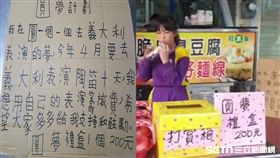 圓夢計劃
我在圓一個去義大利
表演的夢今年4月要去
義大利表演陶笛十天我
想用自己的表演籌旅費希
望大家多多給我支持和鼓勵
圓夢禮盒1個200元
脆 臭豆腐
好 麵線
打賞箱
圓夢
禮盒
200元
三立新聞網